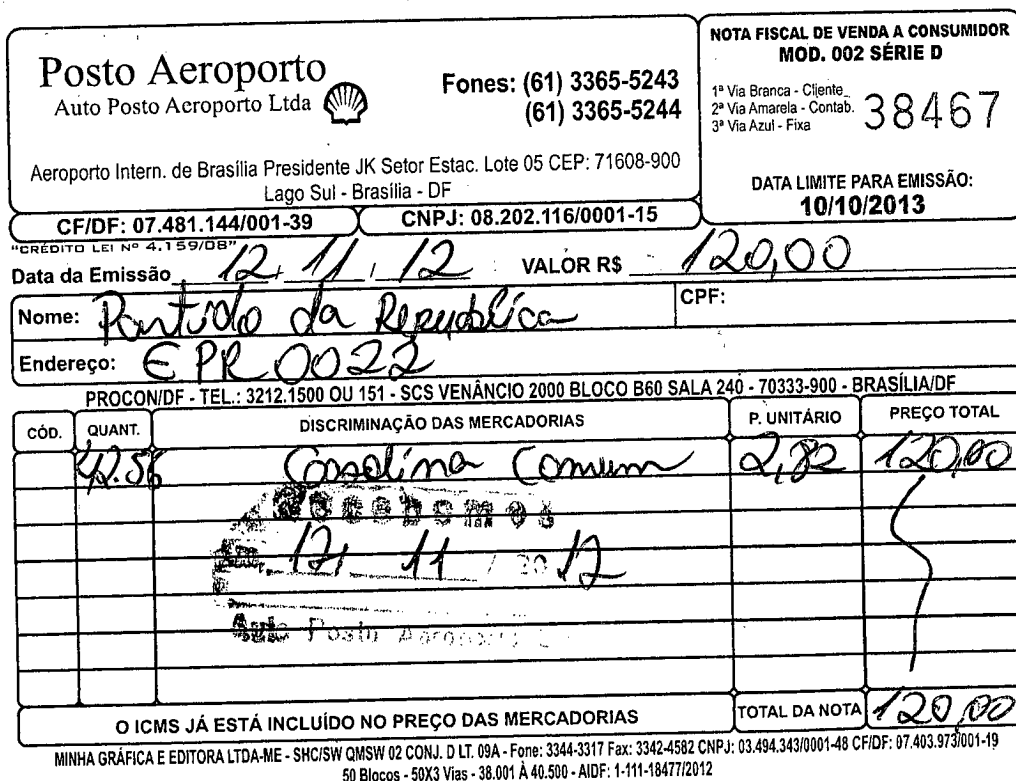 Posto Aeroporto
Auto Posto Aeroporto Ltda
Fones: (61) 3365-5243
(61) 3365-5244
Aeroporto Intern. de Brasília Presidente JK Setor Estac. Lote 05 CEP: 71608-900
Lago Sul - Brasília - DF
CF/DF: 07.481.144/001-39 CNPJ: 08.202.116/0001-15
NOTA FISCAL DE VENDA A CONSUMIDOR
MOD. 002 SÉRIE D
1ª Via Branca - Cliente
2ª Via Amarela - Contab.
3ª Via Azul - Fixa
38467
DATA LIMITE PARA EMISSÃO:
10/10/2013
"CRÉDITO LEI Nº 4.159/08"
Data da Emissão 12, 11, 12 VALOR R$ 120,00
Nome: Partido da Republica CPF:
Endereço: EPR 0022
PROCON/DF - TEL.: 3212.1500 OU 151 - SCS VENÂNCIO 2000 BLOCO B60 SALA 240 - 70333-900 - BRASÍLIA/DF
CÓD. QUANT. DISCRIMINAÇÃO DAS MERCADORIAS P. UNITÁRIO PREÇO TOTAL
42.56 Gasolina Comum 2,82 120,00
Recebemos
12, 11 / 2012
Auto Posto Aeroporto
O ICMS JÁ ESTÁ INCLUÍDO NO PREÇO DAS MERCADORIAS TOTAL DA NOTA 120,00
MINHA GRÁFICA E EDITORA LTDA-ME - SHC/SW QMSW 02 CONJ. D LT. 09A - Fone: 3344-3317 Fax: 3342-4582 CNPJ: 03.494.343/0001-48 CF/DF: 07.403.973/001-19
50 Blocos - 50X3 Vias - 38.001 À 40.500 - AIDF: 1-111-18477/2012